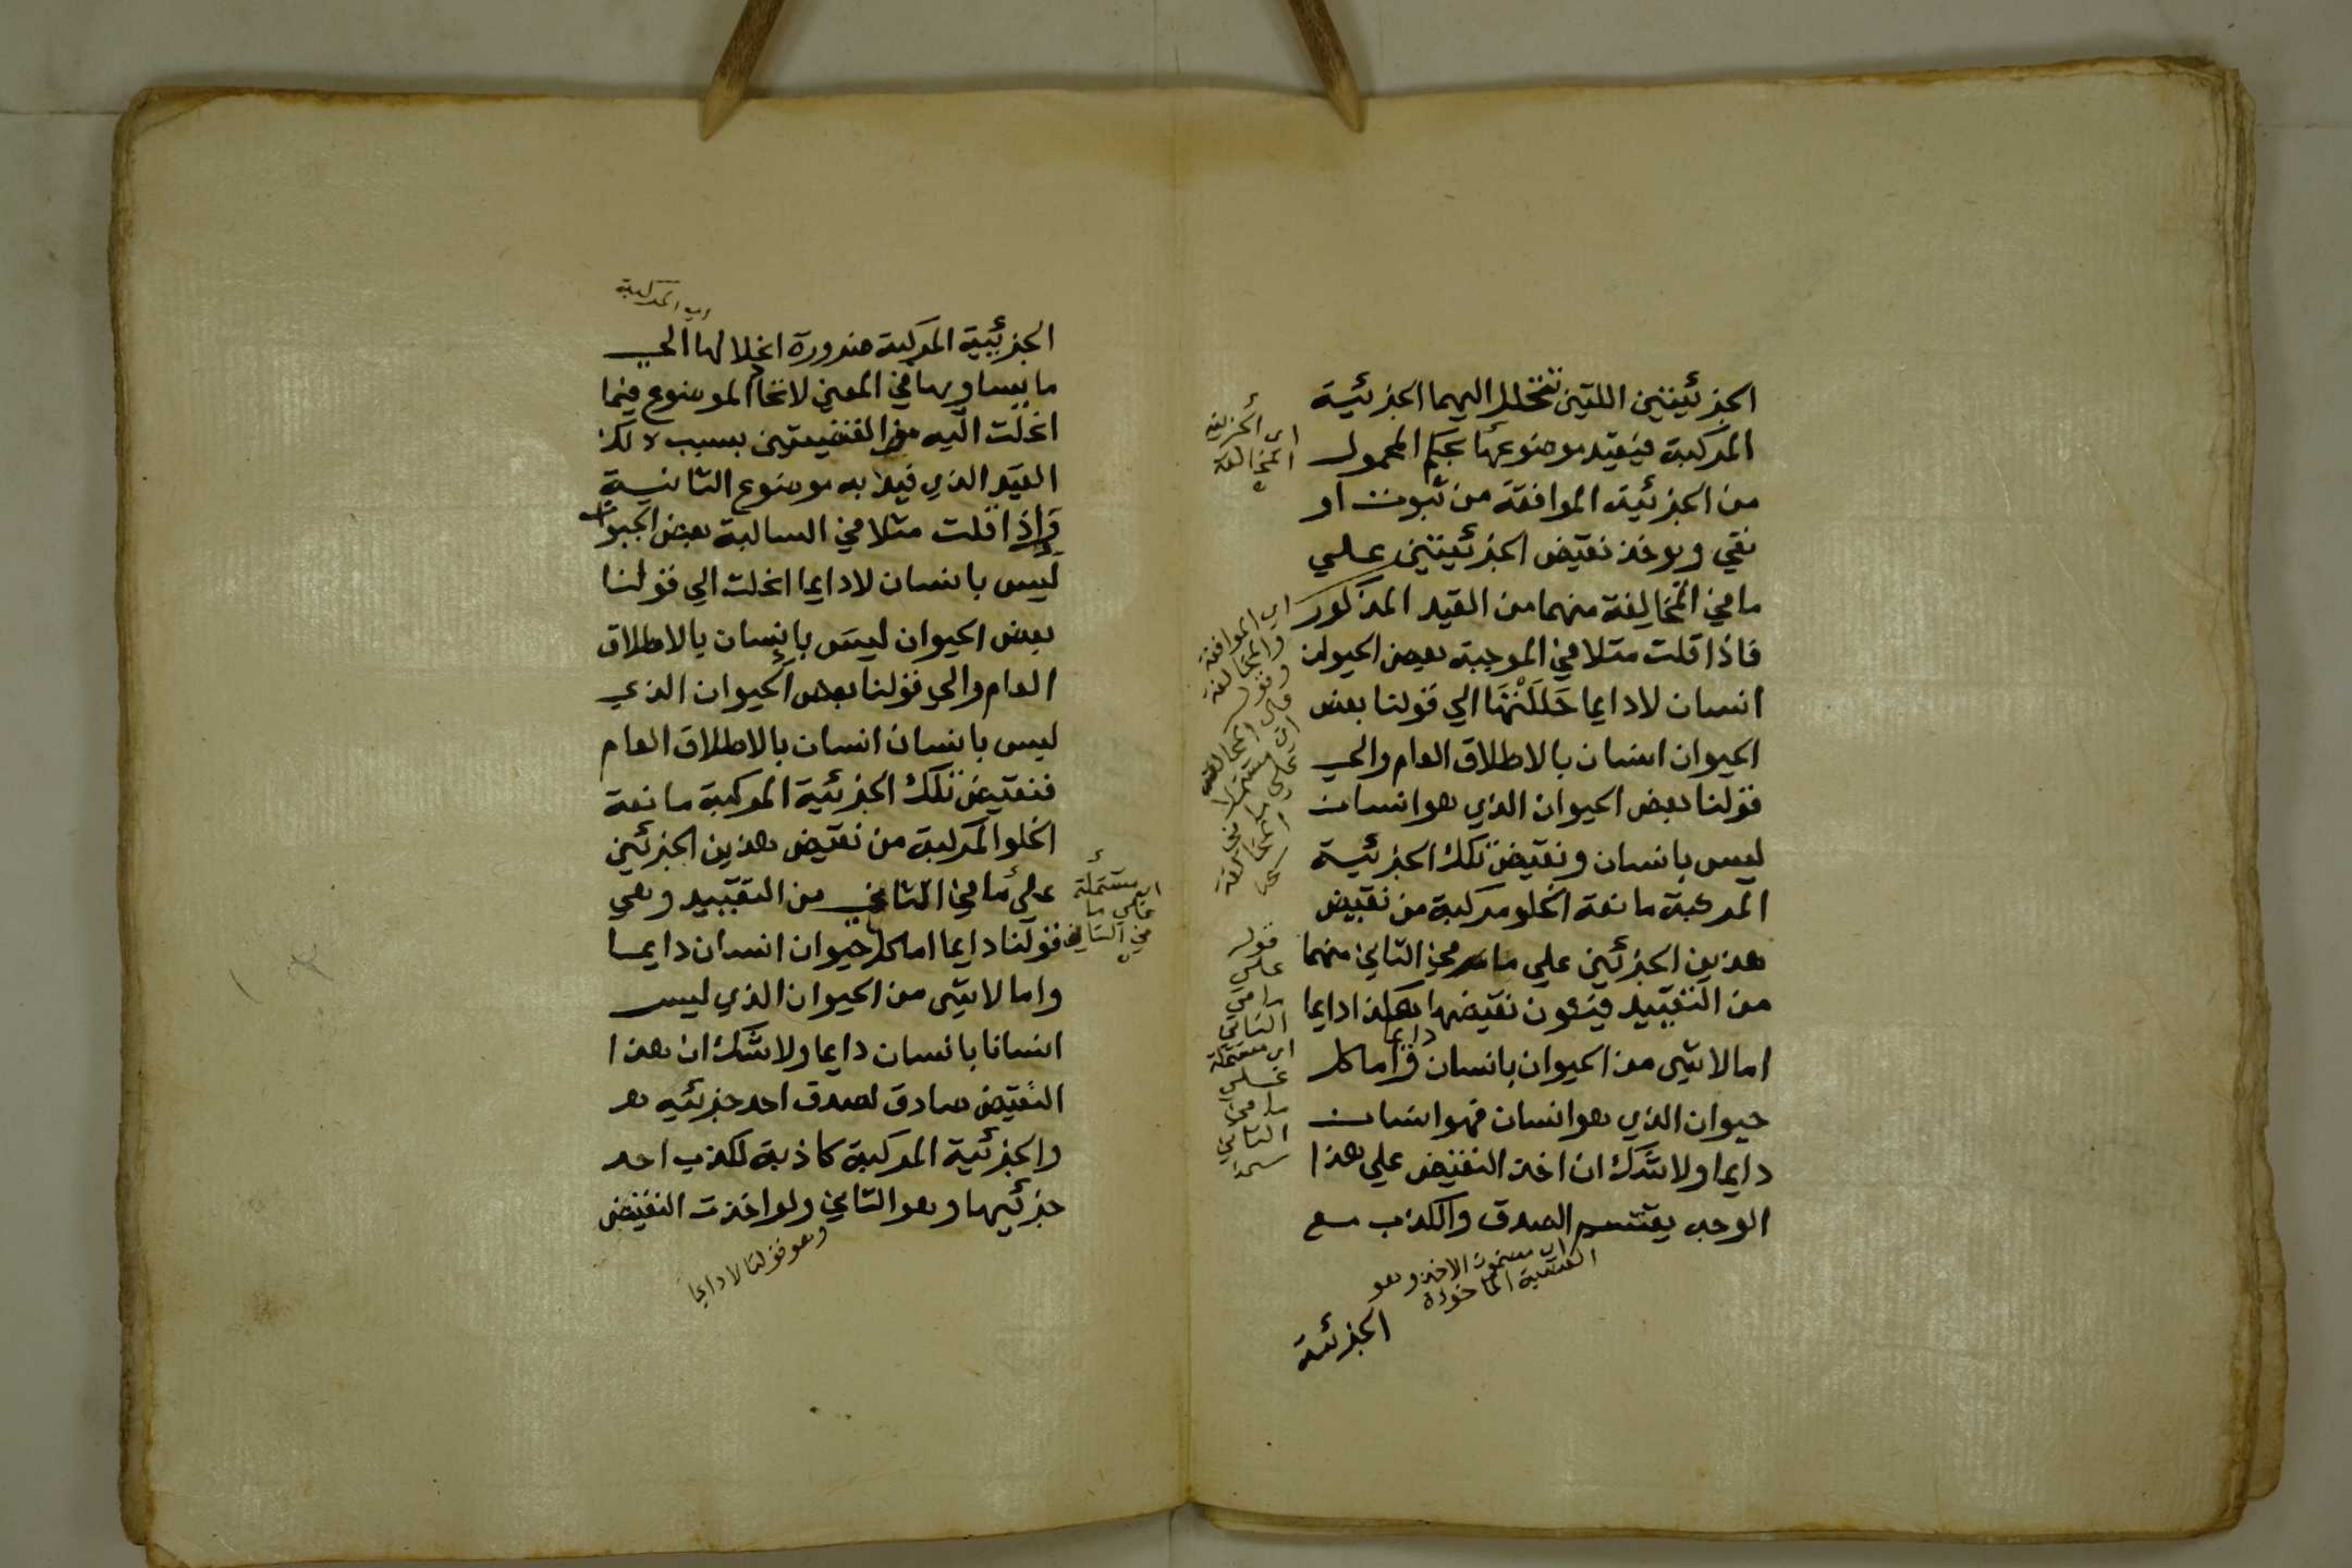 الجزئيتين اللتين تنحلل اليهما الجزئية
المركبة فيقيد موضوعها بحكم المحمول
من الجزئية الموافقة من ثبوت او
نفي ويوخذ نقيض الجزئيتين علي
ما في المخالفة منهما من القيد المذكور
فاذا قلت مثلا في الموجبة بعض الحيوان
انسان لا دايما حللتها الي قولنا بعض
الحيوان انسان بالاطلاق العام والي
قولنا بعض الحيوان الذي هو انسان
ليس بانسان ونقيض تلك الجزئية
المركبة مانعة الخلو مركبة من نقيض
هذين الجزئين علي ما في الثاني منهما
من التقييد فيكون نقيضها هكذا دايما
اما لا شي من الحيوان بانسان دايما واما كل
حيوان الذي هو انسان فهو انسان
دايما ولا شك ان اخذ النقيض علي هذا
الوجه يقتسم الصدق والكذب مع
اي الجزئية
المخالفة
اي الموافقة
والمخالفة
قوله
علي
ما في
الثاني
اي مشتملة
علي
ما في
الثاني
اي مضمون الاخذ وهو
القضية الماخوذة
الجزئية
اي المركبة
الجزئية المركبة ضرورة انحلالها الي
ما يساويها في المعني لاتحاد الموضوع فيما
انحلت اليه من القضيتين بسبب ذلك
القيد الذي قيد به موضوع الثانية
واذا قلت مثلا في السالبة بعض الحيوان
ليس بانسان لا دايما انحلت الي قولنا
بعض الحيوان ليس بانسان بالاطلاق
العام والي قولنا بعض الحيوان الذي
ليس بانسان انسان بالاطلاق العام
فنقيض تلك الجزئية المركبة مانعة
الخلو المركبة من نقيض هذين الجزئين
علي ما في الثاني من التقييد وهي
قولنا دايما اما كل حيوان انسان دايما
واما لا شي من الحيوان الذي ليس
انسانا بانسان دايما ولا شك ان هذا
النقيض صادق لصدق احد جزئيه
والجزئية المركبة كاذبة لكذب احد
جزئيها وهو الثاني ولو اخذت النقيض
اي مشتملة
علي ما
في الثاني
وهو قولنا لا دايما